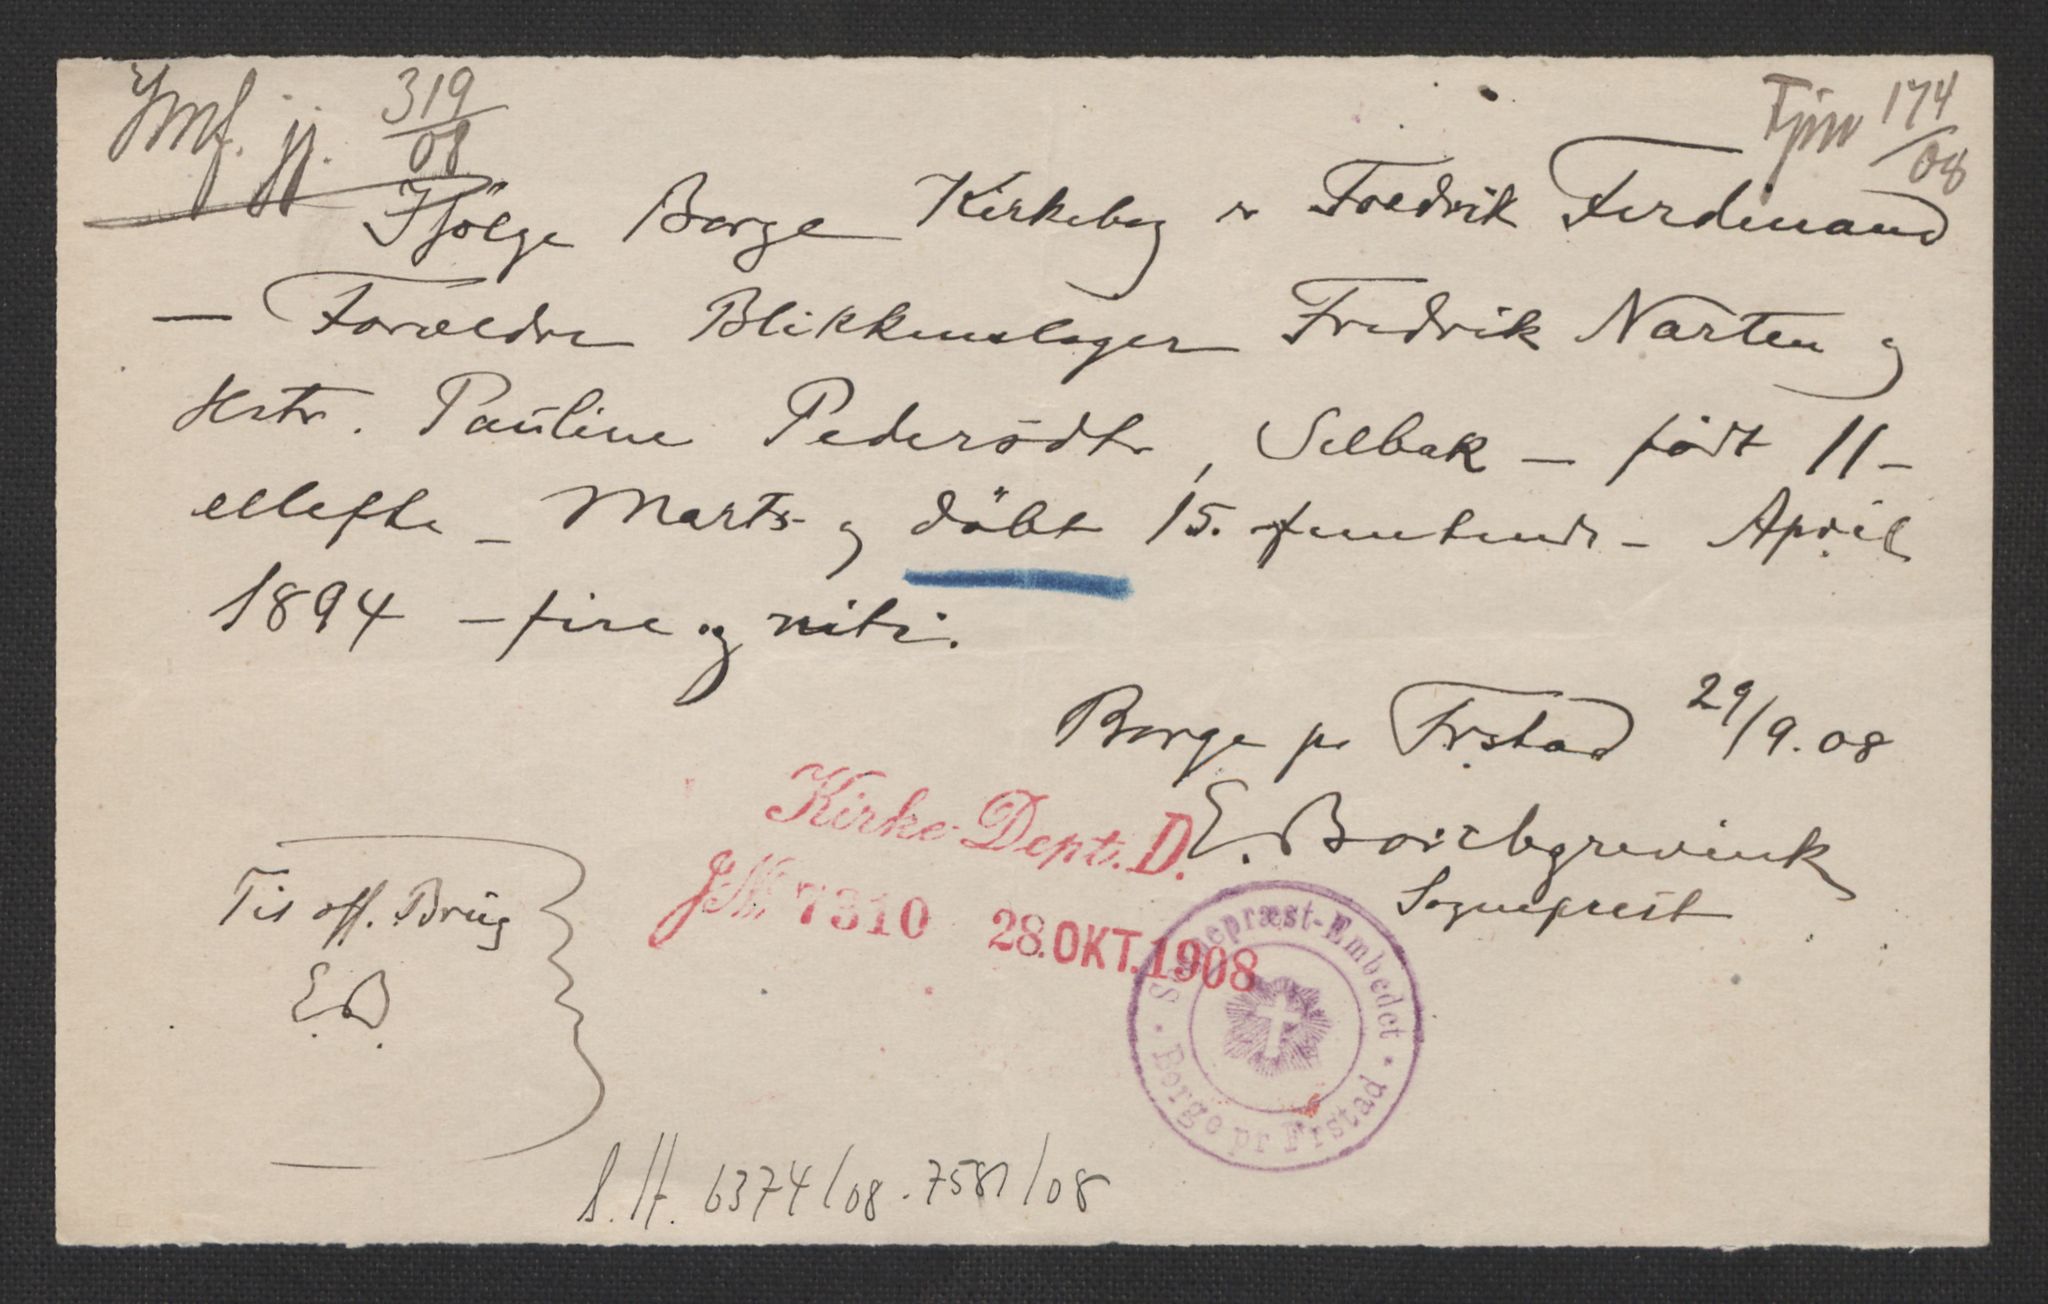 Jmf. jj. 319/08
Fjm 174/08
Ifölge Borge Kirkebog er Fredrik Ferdinand
— Forældre Blikkenslager Fredrik Narten og
Hstr. Pauline Pedersdtr, Selbak — født 11 –
ellefte – Marts og döbt 15. femtende – April
1894 – fire og niti.
Borge pr Frstad 29/9.08
E. Borchgrevink
Sogneprest
Kirke-Dept. D.
J.№ 7310 28. OKT. 1908
Sognepræst-Embedet
Borge pr Frstad
Til off. Brug
E.B.
S. H. 6374/08. 7581/08